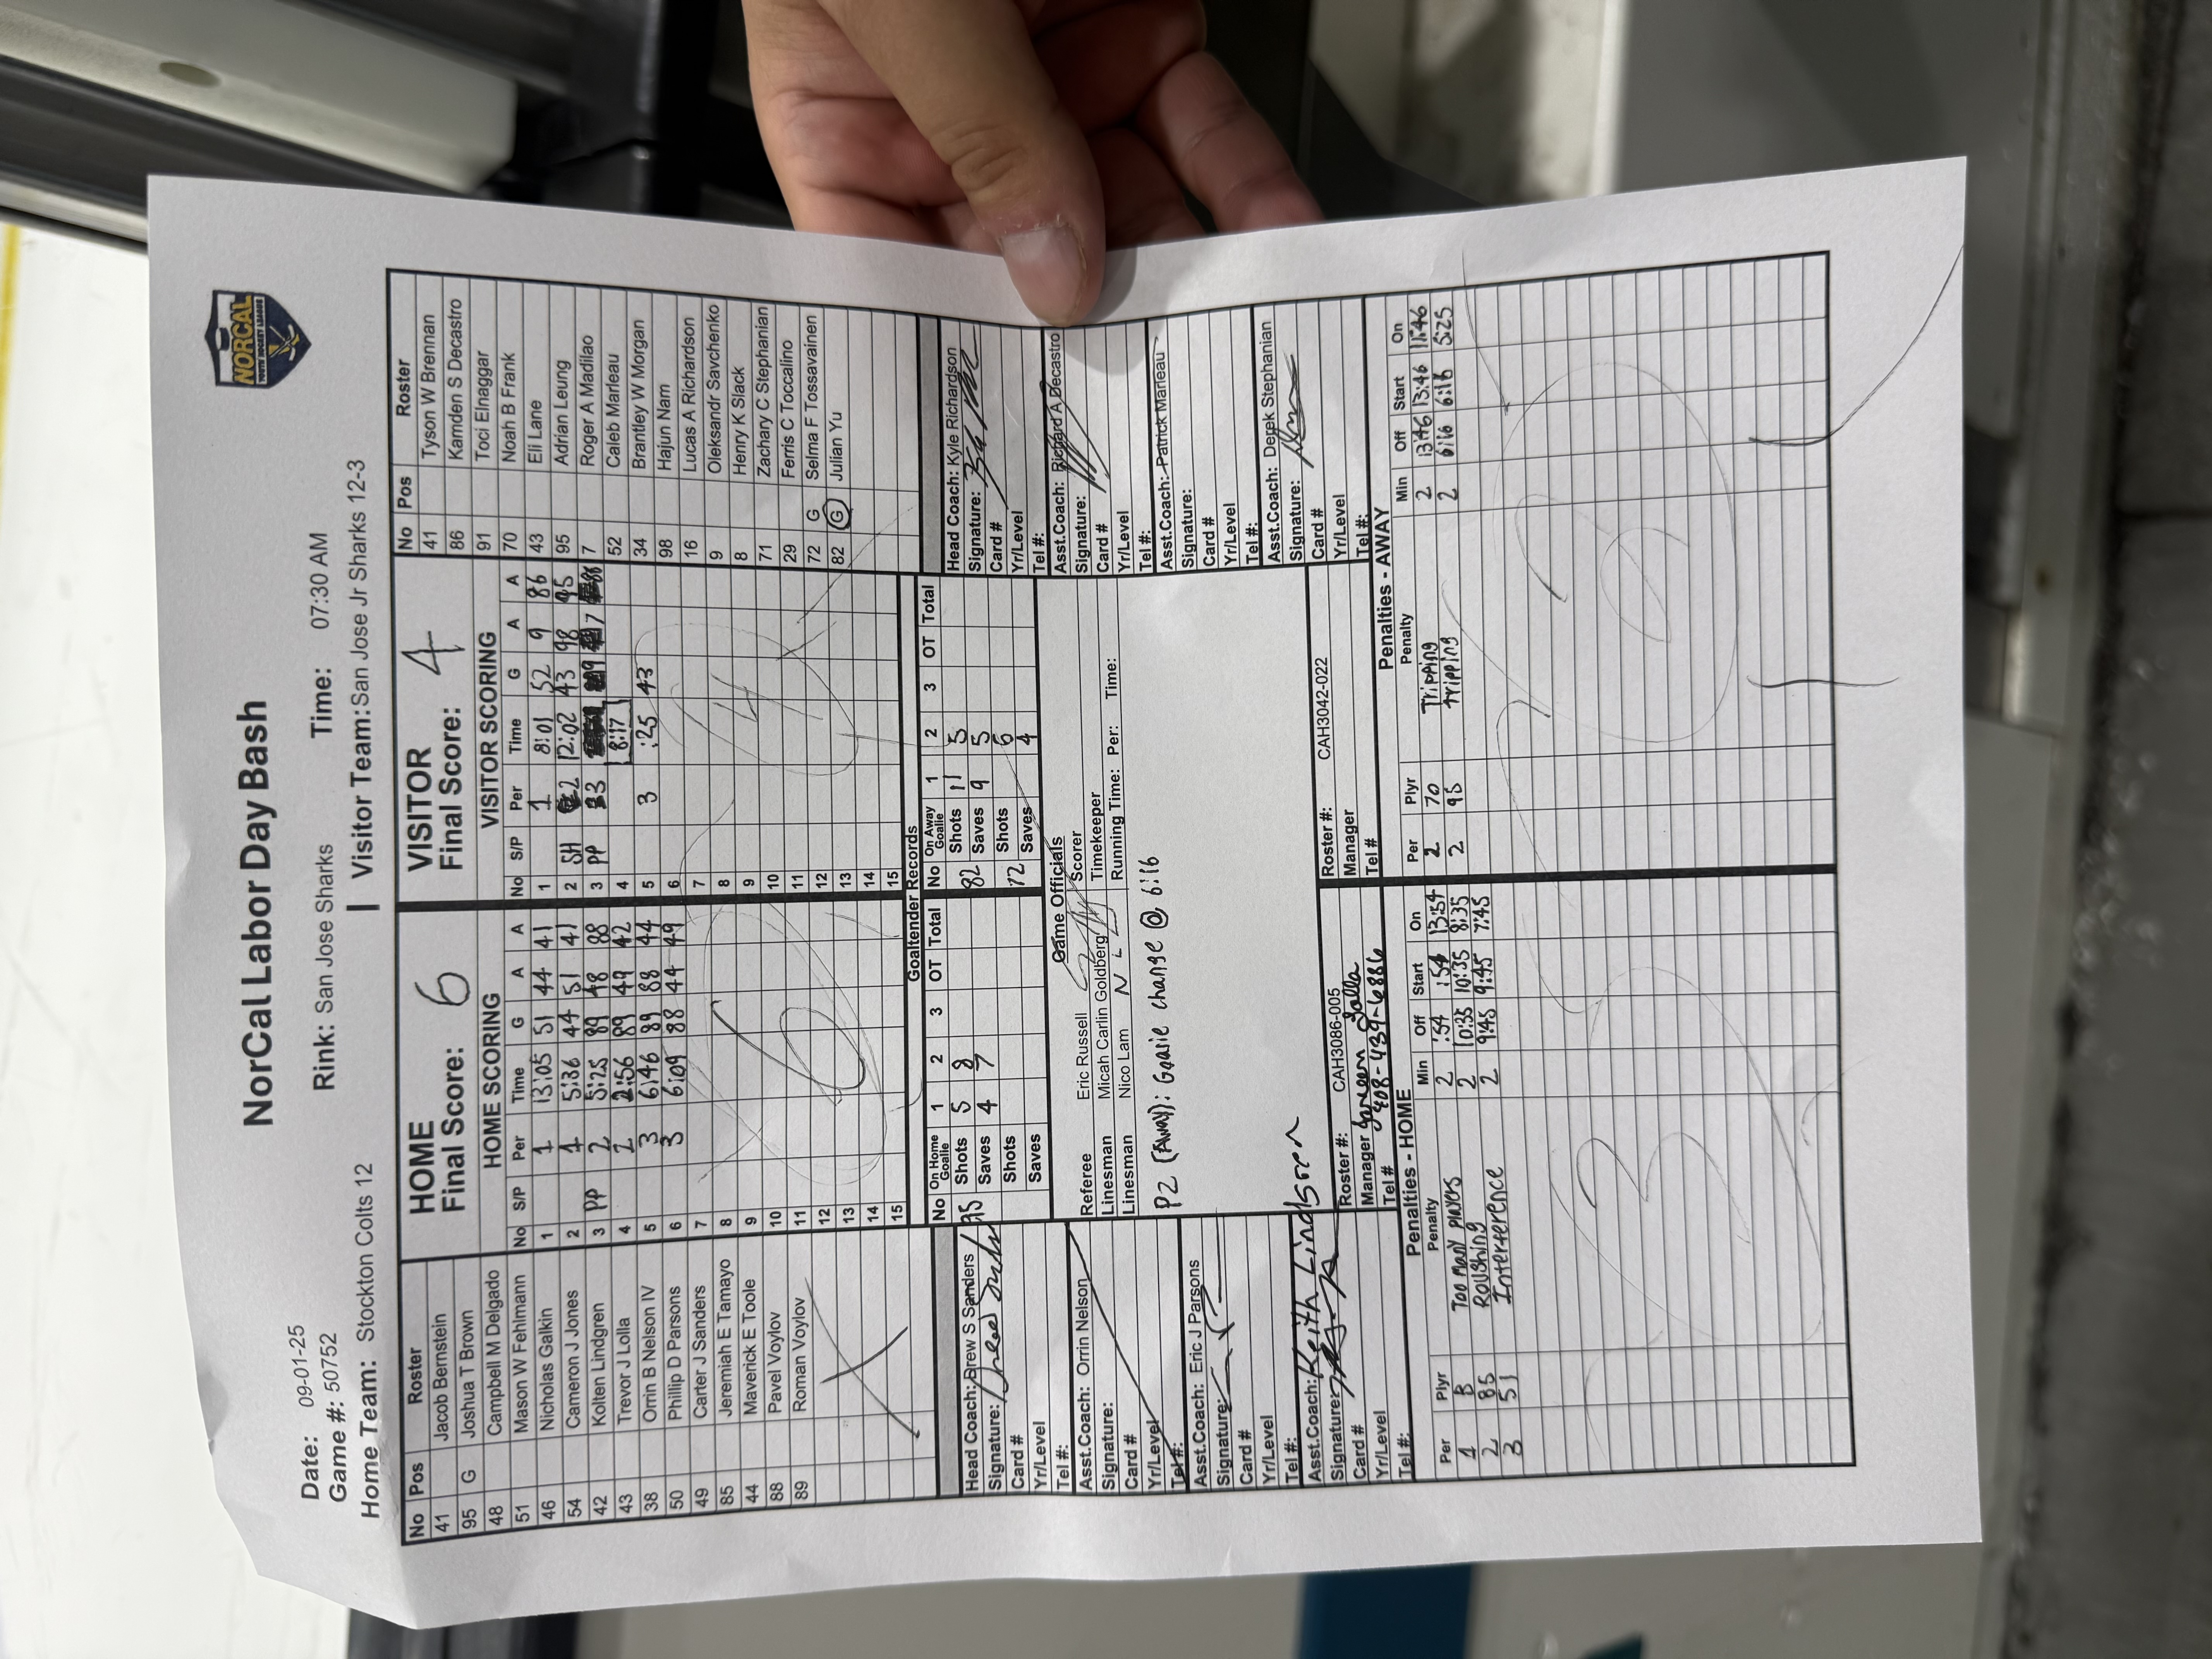 NorCal Labor Day Bash
NORCAL
YOUTH HOCKEY LEAGUE
Date: 09-01-25
Game #: 50752
Rink: San Jose Sharks
Time: 07:30 AM
Home Team: Stockton Colts 12
Visitor Team: San Jose Jr Sharks 12-3
No Pos Roster
41 Jacob Bernstein
95 G Joshua T Brown
48 Campbell M Delgado
51 Mason W Fehlmann
46 Nicholas Galkin
54 Cameron J Jones
42 Kolten Lindgren
43 Trevor J Lolla
38 Orrin B Nelson IV
50 Phillip D Parsons
49 Carter J Sanders
85 Jeremiah E Tamayo
44 Maverick E Toole
88 Pavel Voylov
89 Roman Voylov
HOME
Final Score: 6
HOME SCORING
No S/P Per Time G A A
1 1 13:05 51 44 41
2 1 5:36 44 51 41
3 PP 2 5:25 89 48 88
4 2 2:56 89 49 42
5 3 6:46 89 88 44
6 3 6:09 88 44 49
7
8
9
10
11
12
13
14
15
VISITOR
Final Score: 4
VISITOR SCORING
No S/P Per Time G A A
1 1 8:01 52 9 86
2 SH 2 12:02 43 98 95
3 PP 3 7
4 8:17
5 3 :25 43
6
7
8
9
10
11
12
13
14
15
No Pos Roster
41 Tyson W Brennan
86 Kamden S Decastro
91 Toci Elnaggar
70 Noah B Frank
43 Eli Lane
95 Adrian Leung
7 Roger A Madilao
52 Caleb Marleau
34 Brantley W Morgan
98 Hajun Nam
16 Lucas A Richardson
9 Oleksandr Savchenko
8 Henry K Slack
71 Zachary C Stephanian
29 Ferris C Toccalino
72 G Selma F Tossavainen
82 G Julian Yu
Goaltender Records
No On Home Goalie 1 2 3 OT Total
95 Shots 5 8
Saves 4 7
Shots
Saves
No On Away Goalie 1 2 3 OT Total
82 Shots 11 5
Saves 9 5
72 Shots 6
Saves 4
Head Coach: Drew S Sanders
Signature:
Card #
Yr/Level
Tel #:
Asst.Coach: Orrin Nelson
Signature:
Card #
Yr/Level
Tel #:
Asst.Coach: Eric J Parsons
Signature:
Card #
Yr/Level
Tel #:
Asst.Coach: Keith Lindgren
Signature:
Card #
Yr/Level
Tel #:
Game Officials
Referee Eric Russell
Linesman Micah Carlin Goldberg
Linesman Nico Lam N L
Scorer
Timekeeper
Running Time: Per: Time:
P2 (Away): Goalie change @ 6:16
Head Coach: Kyle Richardson
Signature:
Card #
Yr/Level
Tel #:
Asst.Coach: Richard A Decastro
Signature:
Card #
Yr/Level
Tel #:
Asst.Coach: Patrick Marleau
Signature:
Card #
Yr/Level
Tel #:
Asst.Coach: Derek Stephanian
Signature:
Card #
Yr/Level
Tel #:
Roster #: CAH3086-005
Manager Lolla
Tel # 408-439-6886
Roster #: CAH3042-022
Manager
Tel #
Penalties - HOME
Per Plyr Penalty Min Off Start On
1 B Too Many Players 2 :54 :54 13:54
2 85 Roughing 2 10:35 10:35 8:35
3 51 Interference 2 9:45 9:45 7:45
3
Penalties - AWAY
Per Plyr Penalty Min Off Start On
2 70 Tripping 2 13:46 13:46 11:46
2 95 Tripping 2 6:16 6:16 5:25
2